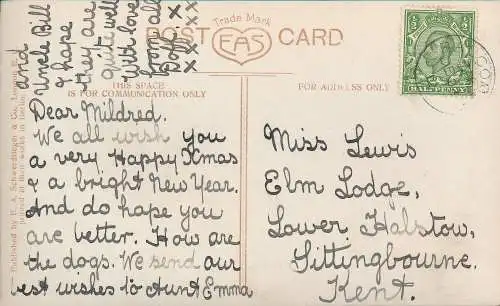 and
Uncle Bill
& hope
they are
quite well
with love
from all
Doff x x
x x x x x
Trade Mark
POST CARD
EAS
½ ½
HALFPENNY
THIS SPACE
IS FOR COMMUNICATION ONLY
FOR ADDRESS ONLY
Published by E. A. Schwerdtfeger & Co., London E.C.
Printed at their works in Berlin
Dear Mildred.
We all wish you
a very Happy Xmas
& a bright New Year.
And do hope you
are better. How are
the dogs. We send our
best wishes to Aunt Emma
Miss Lewis
Elm Lodge,
Lower Halstow,
Sittingbourne.
Kent.